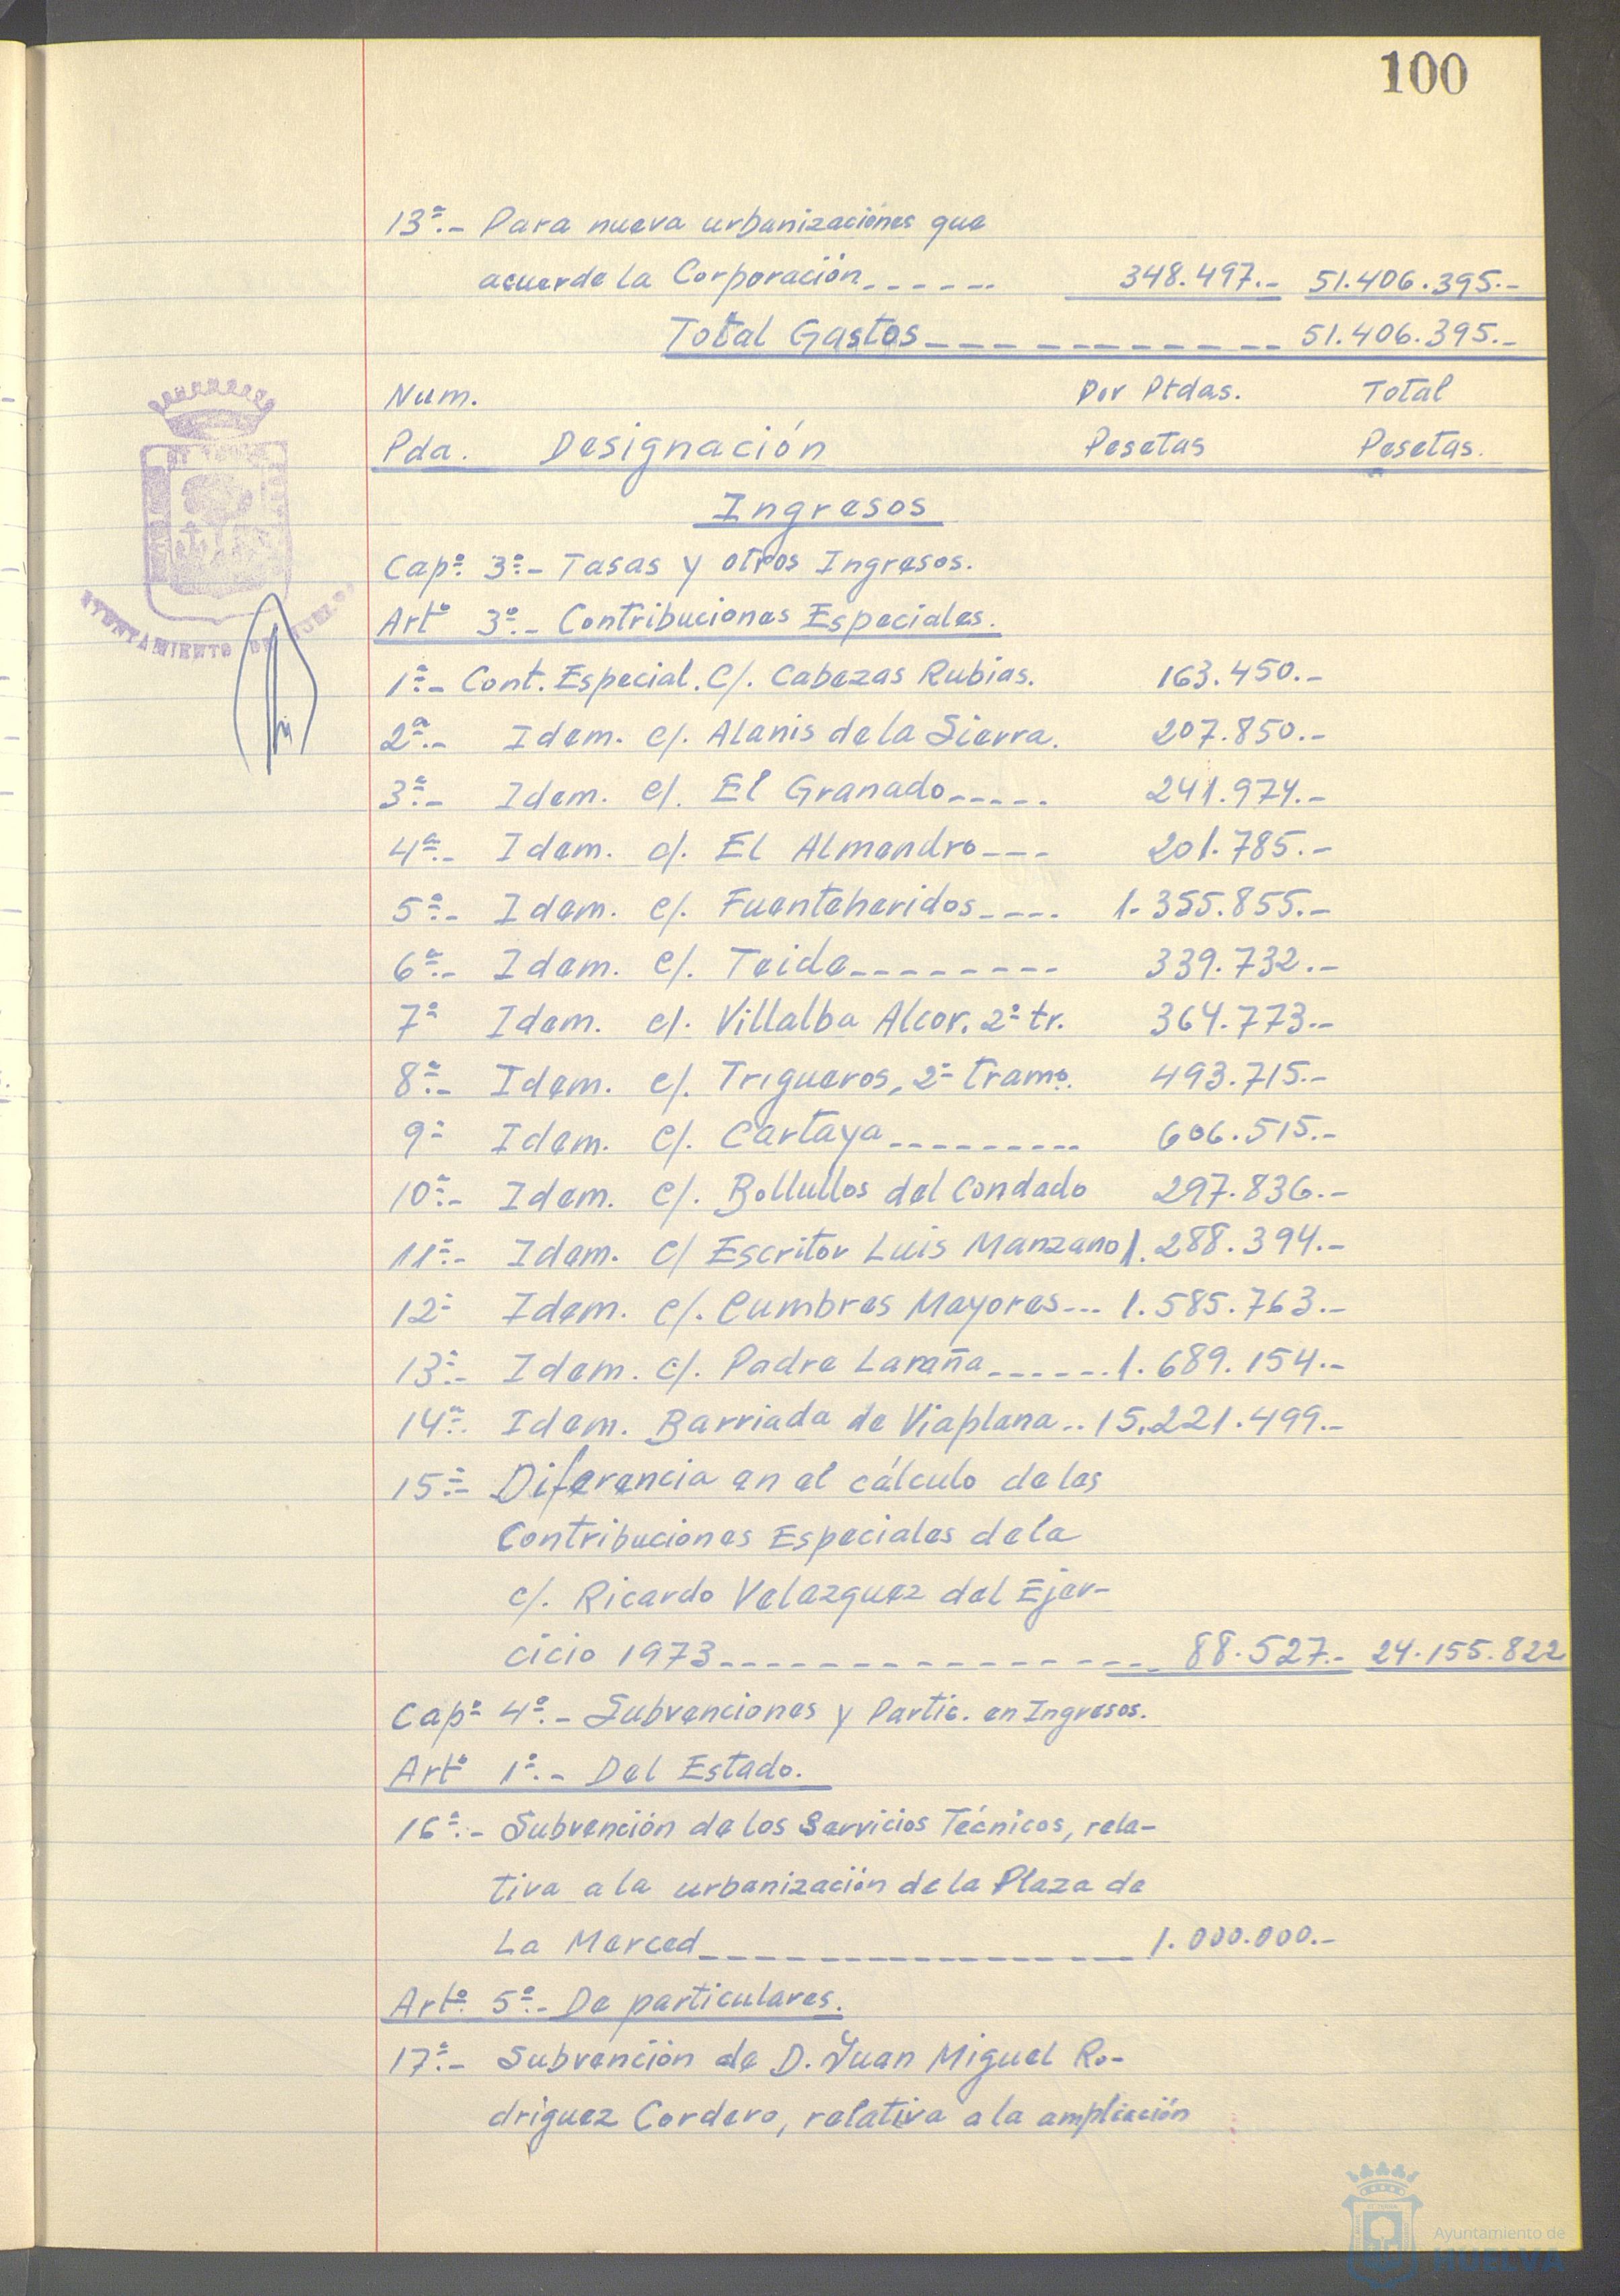 100
13ª.- Para nueva urbanizaciónes que
acuerde la Corporación------ 348.497.- 51.406.395.-
Total Gastos------------ 51.406.395.-
Num. Por Ptdas. Total
Pda. Designación Pesetas Pesetas.
Ingresos
Capº. 3º.- Tasas y otros Ingresos.
Artº 3º.- Contribuciones Especiales.
1ª.- Cont. Especial. C/. Cabezas Rubias. 163.450.-
2ª.- Idem. c/. Alanis de la Sierra. 207.850.-
3ª.- Idem. c/. El Granado----- 241.974.-
4ª.- Idem. c/. El Almendro--- 201.785.-
5ª.- Idem. c/. Fuenteheridos---- 1.355.855.-
6ª.- Idem. c/. Teide-------- 339.732.-
7ª Idem. c/. Villalba Alcor. 2º tr. 364.773.-
8ª.- Idem. c/. Trigueros, 2º tramo. 493.715.-
9ª Idem. c/. Cartaya--------- 606.515.-
10ª.- Idem. c/. Bollullos del Condado 297.836.-
11ª.- Idem. c/ Escritor Luis Manzano 1.288.394.-
12ª Idem. c/. Cumbres Mayores--- 1.585.763.-
13ª.- Idem. c/. Padre Laraña------ 1.689.154.-
14ª.- Idem. Barriada de Viaplana.. 15.221.499.-
15ª.- Diferencia en el cálculo de las
Contribuciones Especiales de la
c/. Ricardo Velazquez del Ejer-
cicio 1973---------------- 88.527.- 24.155.822
Capº 4º.- Subvenciones y Partic. en Ingresos.
Artº 1º.- Del Estado.
16ª.- Subvención de los Servicios Técnicos, rela-
tiva a la urbanización de la Plaza de
La Merced---------------- 1.000.000.-
Artº. 5º.- De particulares.
17ª.- Subvención de D. Juan Miguel Ro-
driguez Cordero, relativa a la ampliación
AYUNTAMIENTO DE HUELVA
Ayuntamiento de
HUELVA